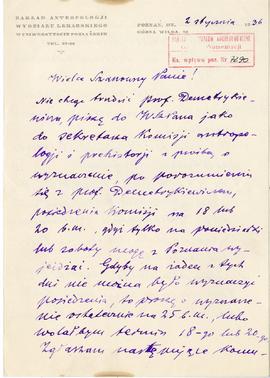 ZAKŁAD ANTROPOLOGJI
WYDZIAŁU LEKARSKIEGO
UNIWERSYTETU POZNAŃSKIEGO
TEL.
POZNAŃ, DN. 2 stycznia 1936
GÓRNA WILDA
Ks. wpływu poz. Nr
Wielce Szanowny Panie!
Nie chcąc trudzić prof. Demetrykie-
wicza, piszę do W.Pana jako
do sekretarza Komisji antropo-
logji i prehistorji z prośbą o
wyznaczenie, po porozumieniu
się z prof. Demetrykiewiczem,
posiedzenia Komisji na 18 lub
20 b.m., gdyż tylko na poniedziałki
lub soboty mogę z Poznania wy-
jeżdżać. Gdyby na żaden z tych
dni nie można było wyznaczyć
posiedzenia, to proszę o wyznacze-
nie ostatecznie na 25 b.m., lecz
wolałbym termin 18-go lub 20-go.
Zgłaszam następujące komu-